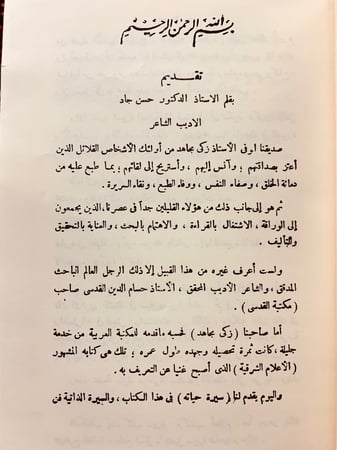 بسم الله الرحمن الرحيم
تقديم
بقلم الاستاذ الدكتور حسن جاد
الاديب الشاعر
صديقنا الوفى الأستاذ زكى مجاهد من أولئك الأشخاص القلائل الذين
أعتز بصداقتهم ؛ وآنس إليهم ، وأستريح إلى لقائهم ؛ بما طبع عليه من
دماثة الخلق ، وصفاء النفس ، ووفاء الطبع ، ونقاء السريرة .
ثم هو إلى جانب ذلك من هؤلاء القليلين جداً فى عصرنا ، الذين يجمعون
إلى الوراقة ، الاشتغال بالقراءة ، والاهتمام بالبحث ، والعناية بالتحقيق
والتأليف .
ولست أعرف غيره من هذا القبيل إلا ذلك الرجل العالم الباحث
المدقق ، والشاعر الأديب المحقق ، الأستاذ حسام الدين القدسى صاحب
( مكتبة القدسى ) .
أما صاحبنا ( زكى مجاهد ) فحسبه ماقدمه للمكتبة العربية من خدمة
جليلة ، كانت ثمرة تحصيله وجهده طول عمره ؛ تلك هى كتابه المشهور
( الاعلام الشرقية ) الذى أصبح غنيا عن التعريف به .
واليوم يقدم لنا ( سيرة حياته ) فى هذا الكتاب ، والسيرة الذاتية فن